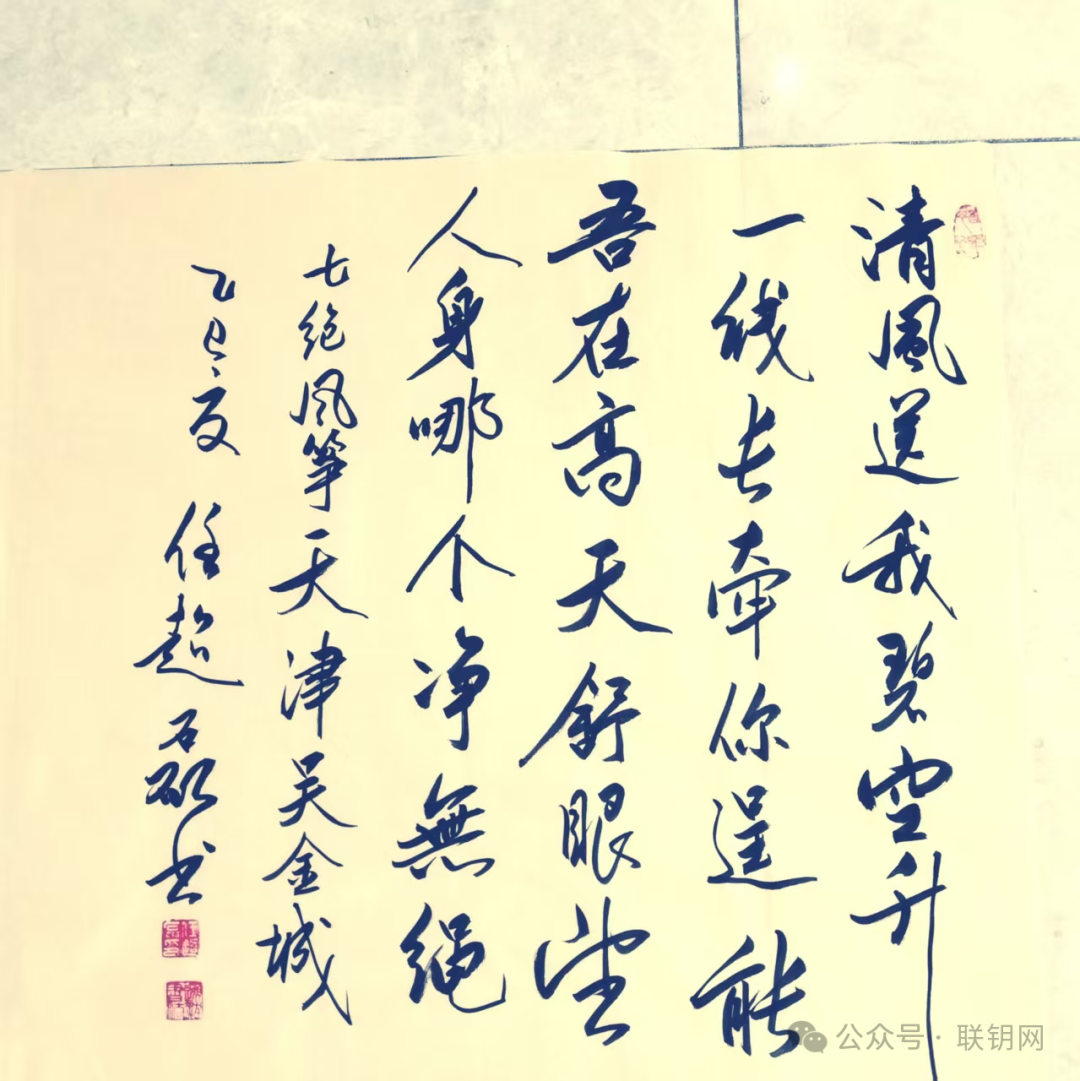 清風送我碧空升
一线长牵你逞能
吾在高天舒眼望
人身哪个净無绳
七绝风筝天津吴金城
乙巳夏 任超 石砳书
公众号·联钥网